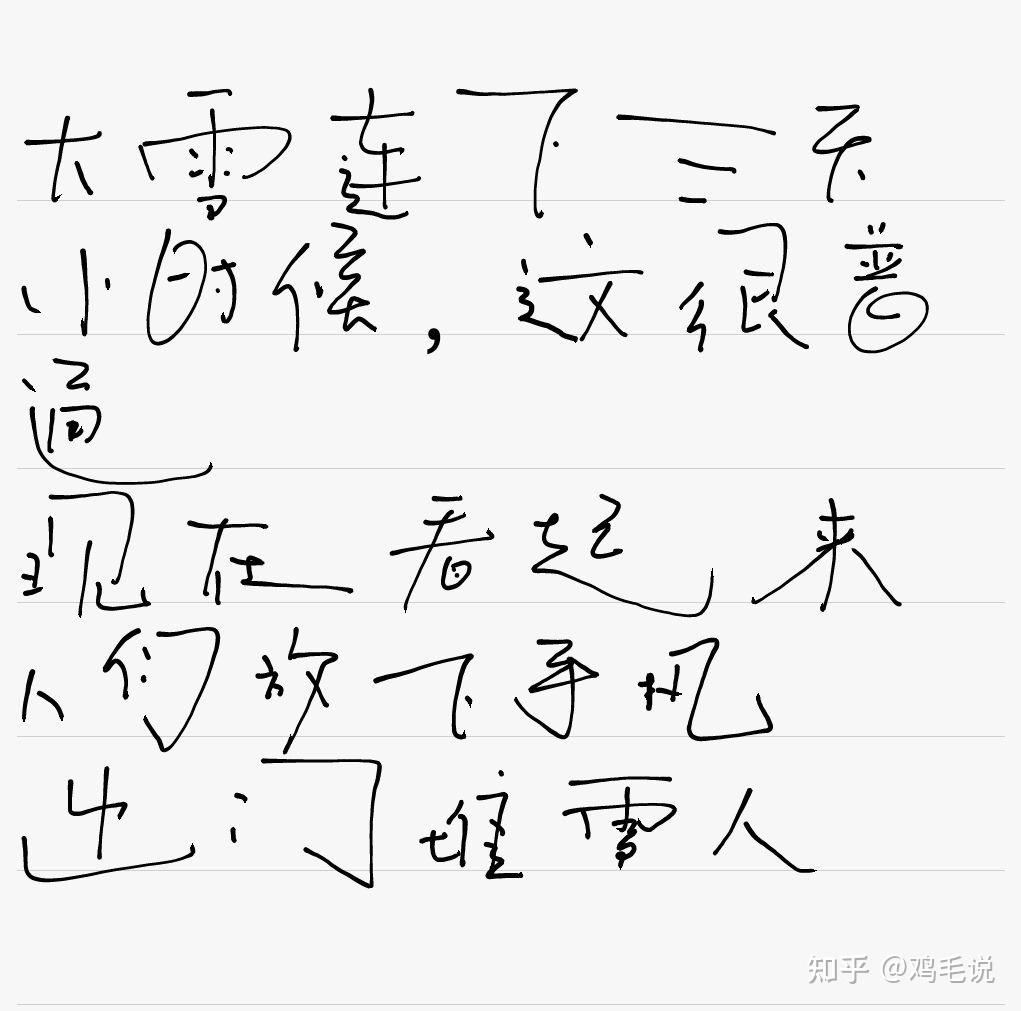 大雪连下三天
小时候，这很普
通
现在看起来
人们放下手机
出门堆雪人
知乎 @鸡毛说